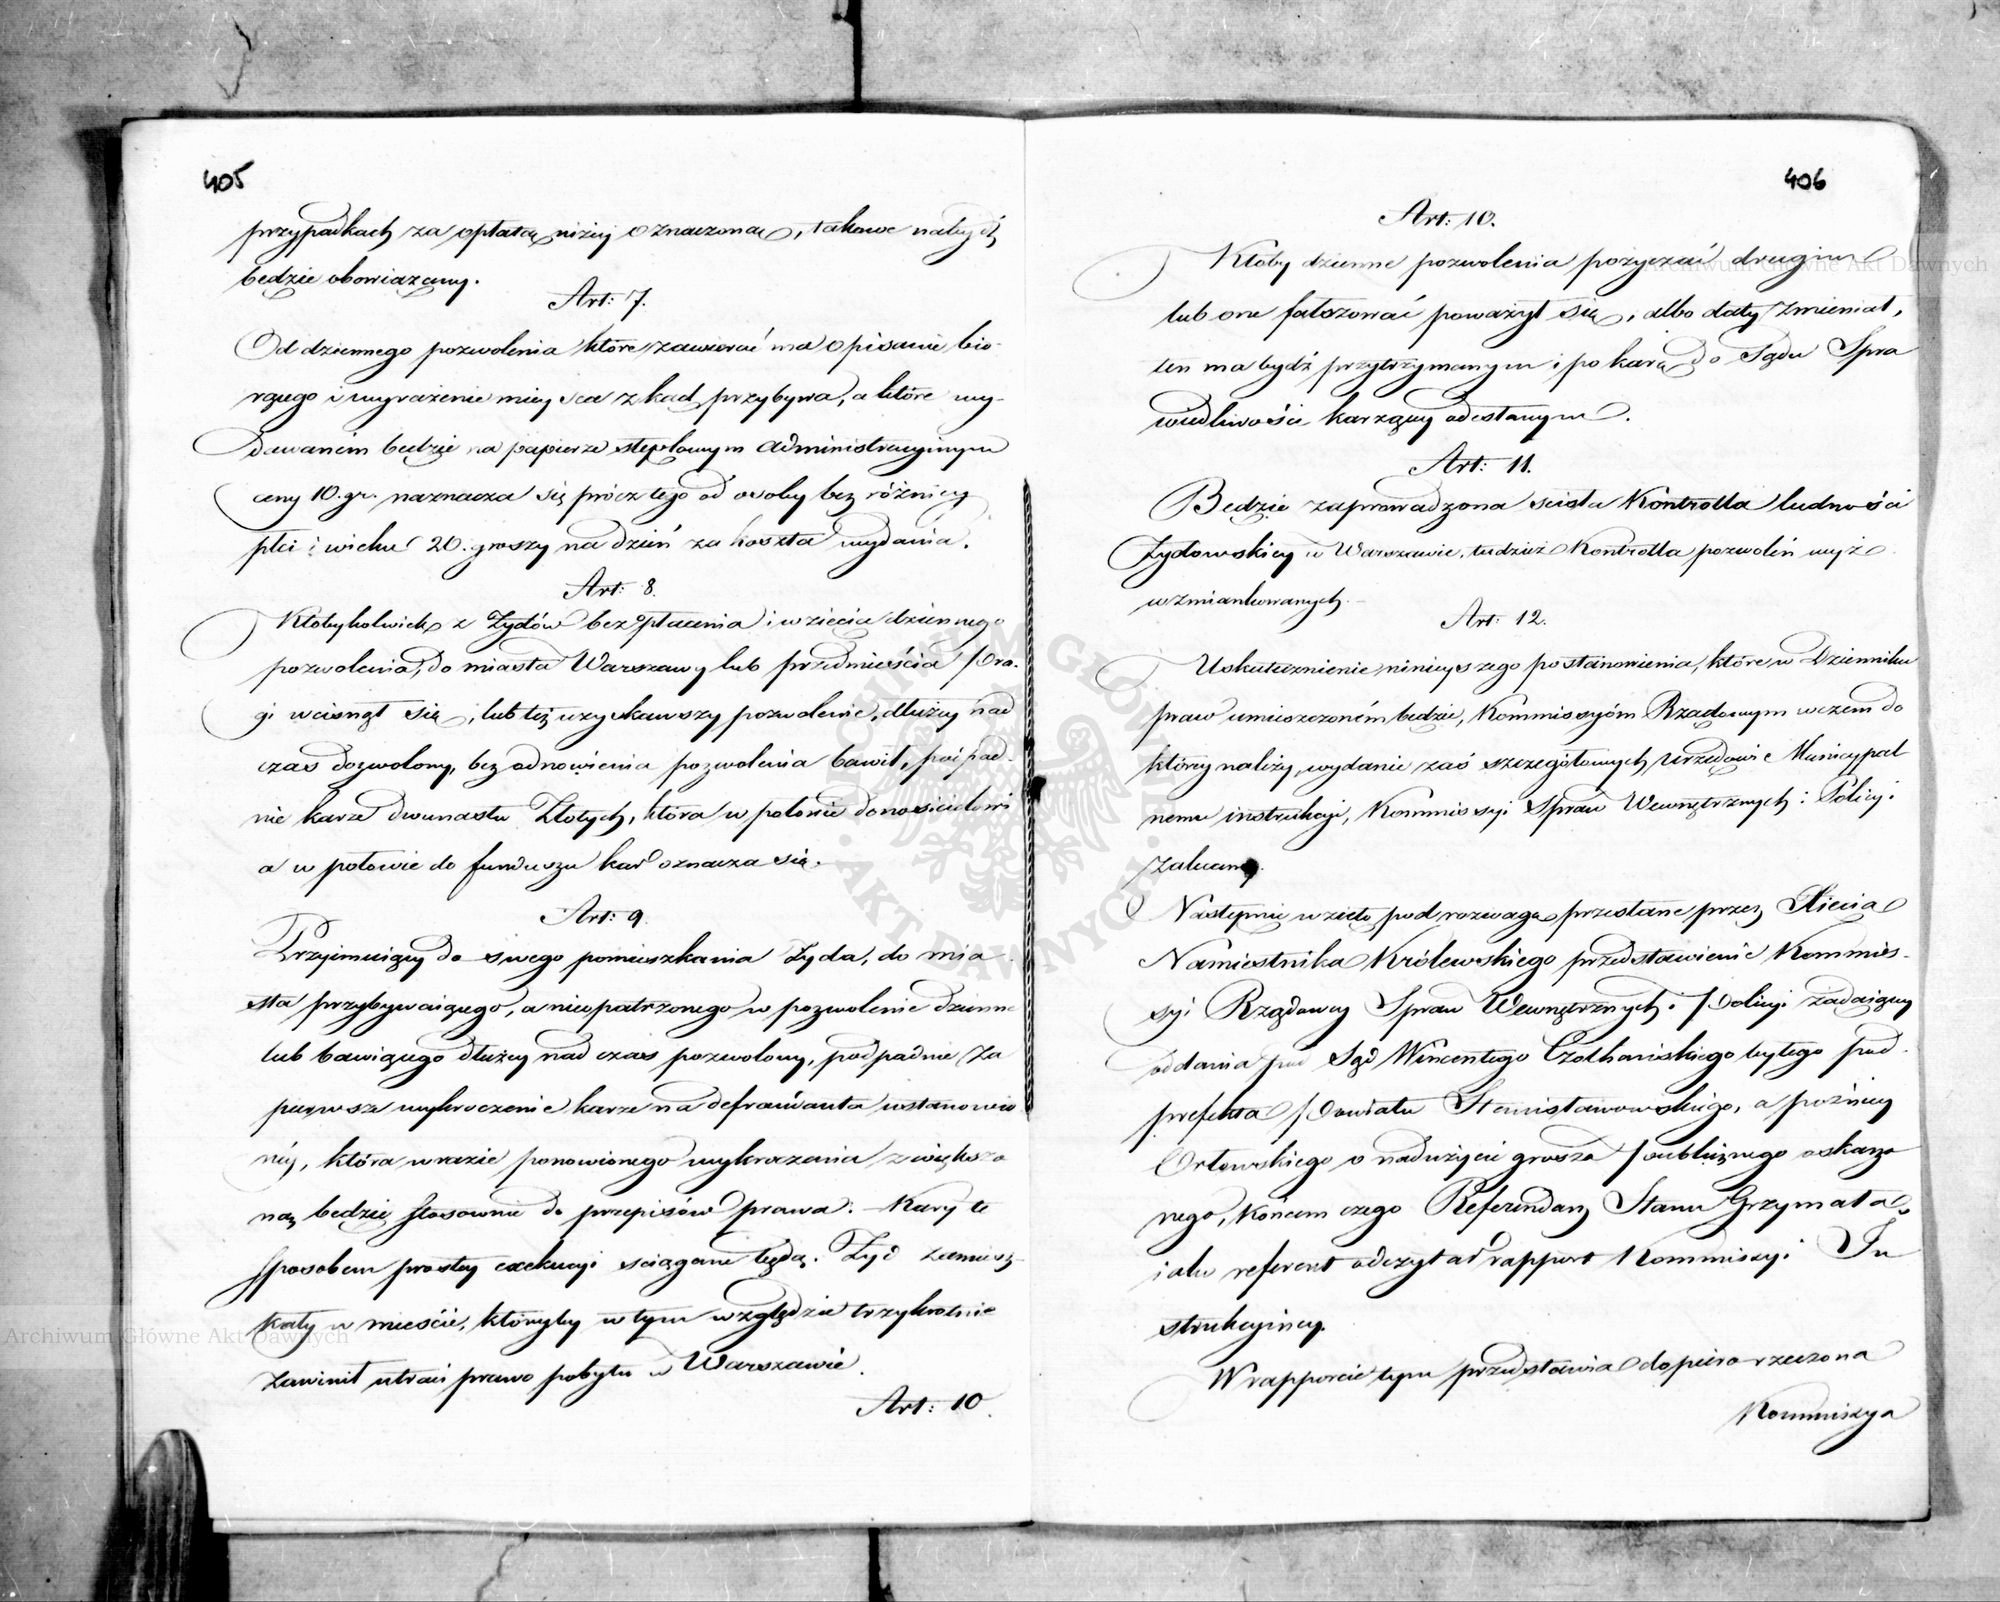 405
przypadkach za opłatą niżej oznaczoną, takowe nabydź
będzie obowiązany.
Art: 7.
Od dziennego pozwolenia które zawierać ma opisanie bio-
rącego i wyrażenie mieysca zkąd przybywa, a które wy-
dawaném będzie na papierze stęplowym administracyjnym
ceny 10. gr. naznacza się prócz tego od osoby bez różnicy
płci i wieku 20. groszy na dzień za koszta wydania.
Art: 8.
Ktobykolwiek z Żydów bez opłacenia i wzięcia dziennego
pozwolenia, do miasta Warszawy lub przedmieścia Pra-
gi wcisnął się, lub też uzyskawszy pozwolenie, dłużey nad
czas dozwolony, bez odnowienia pozwolenia bawił, podpad-
nie karze dwunastu Złotych, która w połowie donosicielowi
a w połowie do funduszu kar oznacza się.
Art: 9.
Przyimuiący do swego pomieszkania Żyda, do mia
sta przybywaiącego, a nieopatrzonego w pozwolenie dzienne
lub bawiącego dłużey nad czas pozwolony, podpadnie za
pierwsze wykroczenie karze na defraudanta ustanowio
néj, która w razie ponowionego wykroczenia zwiększo
ną będzie stosownie do przepisów prawa. – Kary te
sposobem prostey exekucyi ściągane będą. Żyd zamiesz-
kały w mieście, któryby w tym względzie trzykrotnie
zawinił utraci prawo pobytu w Warszawie.
Art: 10.
406
Art: 10.
Ktoby dzienne pozwolenia pożyczać drugim
lub one fałszować poważył się, albo daty zmieniał,
ten ma bydź przytrzymanym i po karę do Sądu Spra
wiedliwości karzącey odesłanym.
Art: 11.
Będzie zaprowadzona ścisła Kontrolla ludności
Żydowskiey w Warszawie, tudzież Kontrolla pozwoleń wyż
wzmiankowanych.
Art: 12.
Uskutecznienie ninieyszego postanowienia, które w Dzienniku
praw umieszczoném będzie, Kommissyóm Rządowym w czem do
którey należy, wydanie zaś szczegółowych Urzędowi Municypal
nemu instrukcyi, Kommissyi Spraw Wewnętrznych i Policyi
zalecamy.
Następnie wzięto pod rozwagę przesłane przez Xięcia
Namiestnika Królewskiego przedstawienie Kommis-
syi Rządowey Spraw Wewnętrznych i Policyi żądaiącey
oddania pod Sąd Wincentego Czołhańskiego byłego pod-
prefekta Powiatu Stanisławowskiego, a późniey
Orłowskiego o nadużycie grosza publicznego oskarżo
nego, końcem czego Referendarz Stanu Grzymała
iako referent odczytał rapport Kommissyi In
strukcyiney.
W rapporcie tym przedstawia dopiero rzeczona
Kommissya
Archiwum Główne Akt Dawnych
Archiwum Główne Akt Dawnych
ARCHIWUM GŁÓWNE · AKT DAWNYCH ·